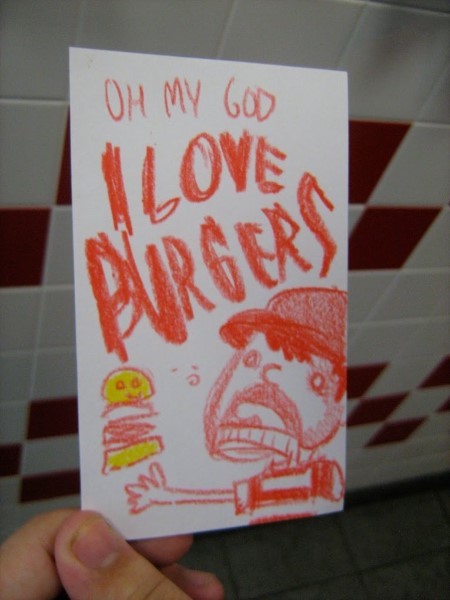 OH MY GOD
I LOVE
BURGERS